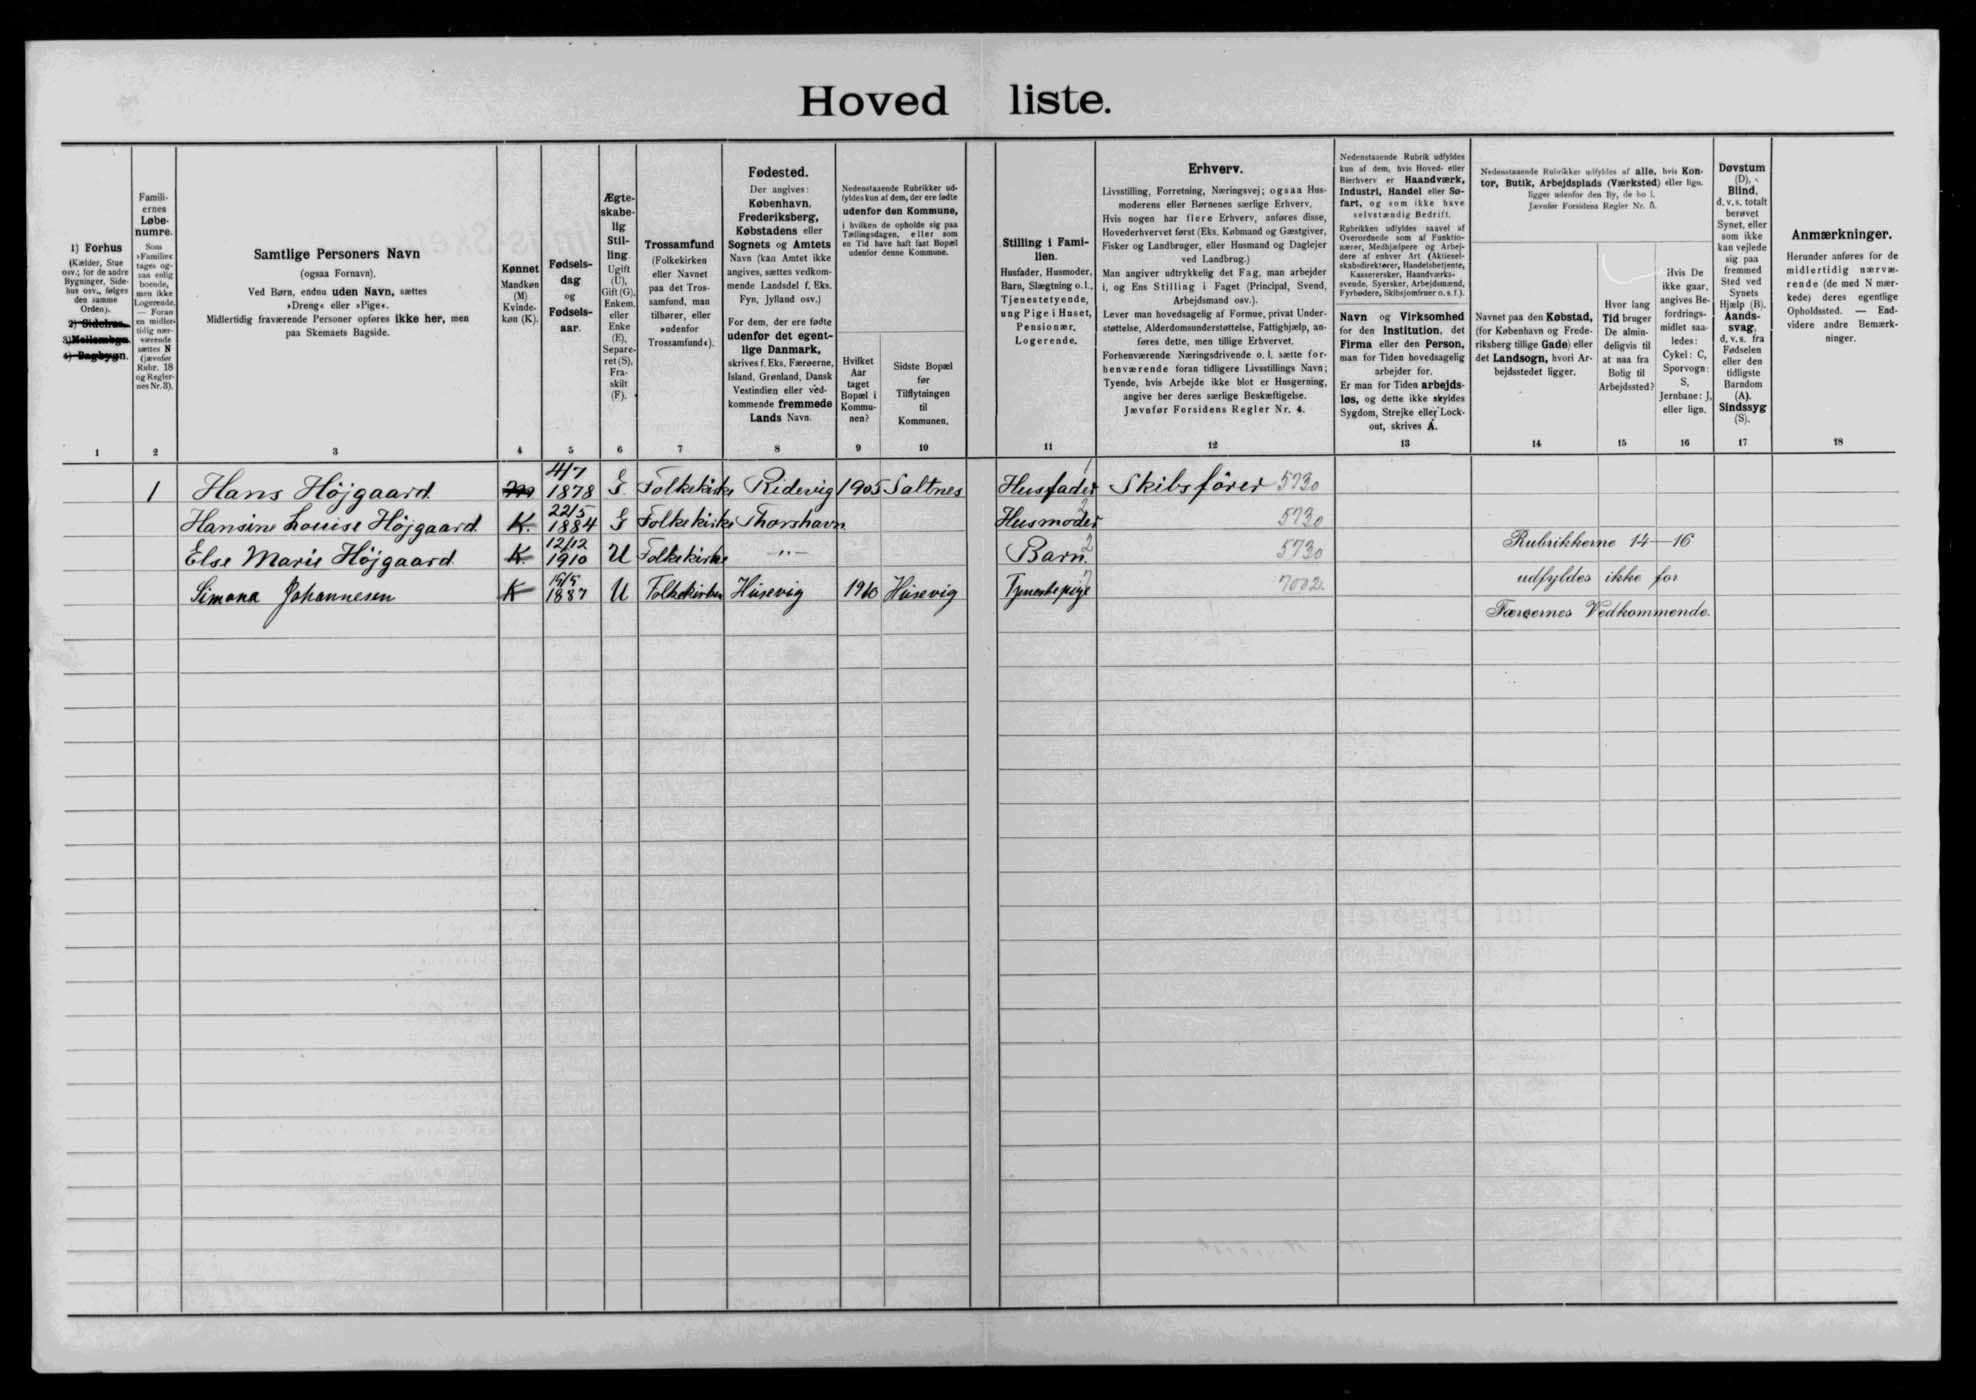 Hoved liste.
1) Forhus
(Kælder, Stue
osv.; for de andre
Bygninger, Side-
hus osv., følges
den samme
Orden).
2) Sidehus.
3) Mellembygn.
4) Bagbygn.
1
Famili-
ernes
Løbe-
numre.
Som
»Familie«
tages og-
saa enlig
boende,
men ikke
Logerende.
— Foran
en midler-
tidig nær-
værende
sættes N
(jævnfør
Rubr. 18
og Regler-
nes Nr. 3).
2
Samtlige Personers Navn
(ogsaa Fornavn).
Ved Børn, endnu uden Navn, sættes
»Dreng« eller »Pige«.
Midlertidig fraværende Personer opføres ikke her, men
paa Skemaets Bagside.
3
Kønnet
Mandkøn
(M)
Kvinde-
køn (K).
4
Fødsels-
dag
og
Fødsels-
aar.
5
Ægte-
skabe-
lig
Stil-
ling.
Ugift
(U),
Gift (G),
Enkem.
eller
Enke
(E),
Separe-
ret (S),
Fra-
skilt
(F).
6
Trossamfund
(Folkekirken
eller Navnet
paa det Tros-
samfund, man
tilhører, eller
»udenfor
Trossamfund«).
7
Fødested.
Der angives:
København,
Frederiksberg,
Købstadens eller
Sognets og Amtets
Navn (kan Amtet ikke
angives, sættes vedkom-
mende Landsdel f. Eks.
Fyn, Jylland osv.)
For dem, der ere fødte
udenfor det egent-
lige Danmark,
skrives f. Eks. Færøerne,
Island, Grønland, Dansk
Vestindien eller ved-
kommende fremmede
Lands Navn.
8
Nedenstaaende Rubrikker ud-
fyldes kun af dem, der ere fødte
udenfor den Kommune,
i hvilken de opholde sig paa
Tællingsdagen, eller som
en Tid have haft fast Bopæl
udenfor denne Kommune.
Hvilket
Aar
taget
Bopæl i
Kommu-
nen?
9
Sidste Bopæl
før
Tilflytningen
til
Kommunen.
10
Stilling i Fami-
lien.
Husfader, Husmoder,
Barn, Slægtning o. l.,
Tjenestetyende,
ung Pige i Huset,
Pensionær,
Logerende.
11
Erhverv.
Livsstilling, Forretning, Næringsvej; ogsaa Hus-
moderens eller Børnenes særlige Erhverv.
Hvis nogen har flere Erhverv, anføres disse,
Hovederhvervet først (Eks. Købmand og Gæstgiver,
Fisker og Landbruger, eller Husmand og Daglejer
ved Landbrug.)
Man angiver udtrykkelig det Fag, man arbejder
i, og Ens Stilling i Faget (Principal, Svend,
Arbejdsmand osv.).
Lever man hovedsagelig af Formue, privat Under-
støttelse, Alderdomsunderstøttelse, Fattighjælp, an-
føres dette, men tillige Erhvervet.
Forhenværende Næringsdrivende o. l. sætte for-
henværende foran tidligere Livsstillings Navn;
Tyende, hvis Arbejde ikke blot er Husgerning,
angive her deres særlige Beskæftigelse.
Jævnfør Forsidens Regler Nr. 4.
12
Nedenstaaende Rubrik udfyldes
kun af dem, hvis Hoved- eller
Bierhverv er Haandværk,
Industri, Handel eller Sø-
fart, og som ikke have
selvstændig Bedrift.
Rubrikken udfyldes saavel af
Overordnede som af Funktio-
nærer, Medhjælpere og Arbej-
dere af enhver Art (Aktiesel-
skabsdirektører, Handelsbetjente,
Kassererskér, Haandværks-
svende, Syersker, Arbejdsmænd,
Fyrbødere, Skibsjomfruer o. s. f.).
Navn og Virksomhed
for den Institution, det
Firma eller den Person,
man for Tiden hovedsagelig
arbejder for.
Er man for Tiden arbejds-
løs, og dette ikke skyldes
Sygdom, Strejke eller Lock-
out, skrives A.
13
Nedenstaaende Rubrikker udfyldes af alle, hvis Kon-
tor, Butik, Arbejdsplads (Værksted) eller lign.
ligger udenfor den By, de bo i.
Jævnfør Forsidens Regler Nr. 5.
Navnet paa den Købstad,
(for København og Frede-
riksberg tillige Gade) eller
det Landsogn, hvori Ar-
bejdsstedet ligger.
14
Hvor lang
Tid bruger
De almin-
deligvis til
at naa fra
Bolig til
Arbejdssted?
15
Hvis De
ikke gaar,
angives Be-
fordrings-
midlet saa-
ledes:
Cykel: C,
Sporvogn:
S,
Jernbane: J,
eller lign.
16
Døvstum
(D),
Blind,
d. v. s. totalt
berøvet
Synet, eller
som ikke
kan vejlede
sig paa
fremmed
Sted ved
Synets
Hjælp (B).
Aands-
svag,
d. v. s. fra
Fødselen
eller den
tidligste
Barndom
(A).
Sindssyg
(S).
17
Anmærkninger.
Herunder anføres for de
midlertidig nærvæ-
rende (de med N mær-
kede) deres egentlige
Opholdssted. — End-
videre andre Bemærk-
ninger.
18
1 Hans Højgaard 4/7 1878 G Folkekirke Ridevig 1905 Saltnes Husfader 1 Skibsfører 5730
Hansine Louise Højgaard K. 22/5 1884 G Folkekirke Thorshavn Husmoder 2 5730
Else Marie Højgaard K. 12/12 1910 U Folkekirke —"— Barn. 2 5730
Simona Johannesen K 15/5 1887 U Folkekirken Húsevig 1910 Húsevig Tjenestepige 7 7002.
Rubrikkerne 14—16
udfyldes ikke for
Færøernes Vedkommende.